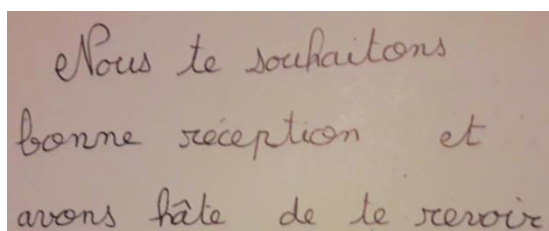 Nous te souhaitons
bonne réception et
avons hâte de te revoir